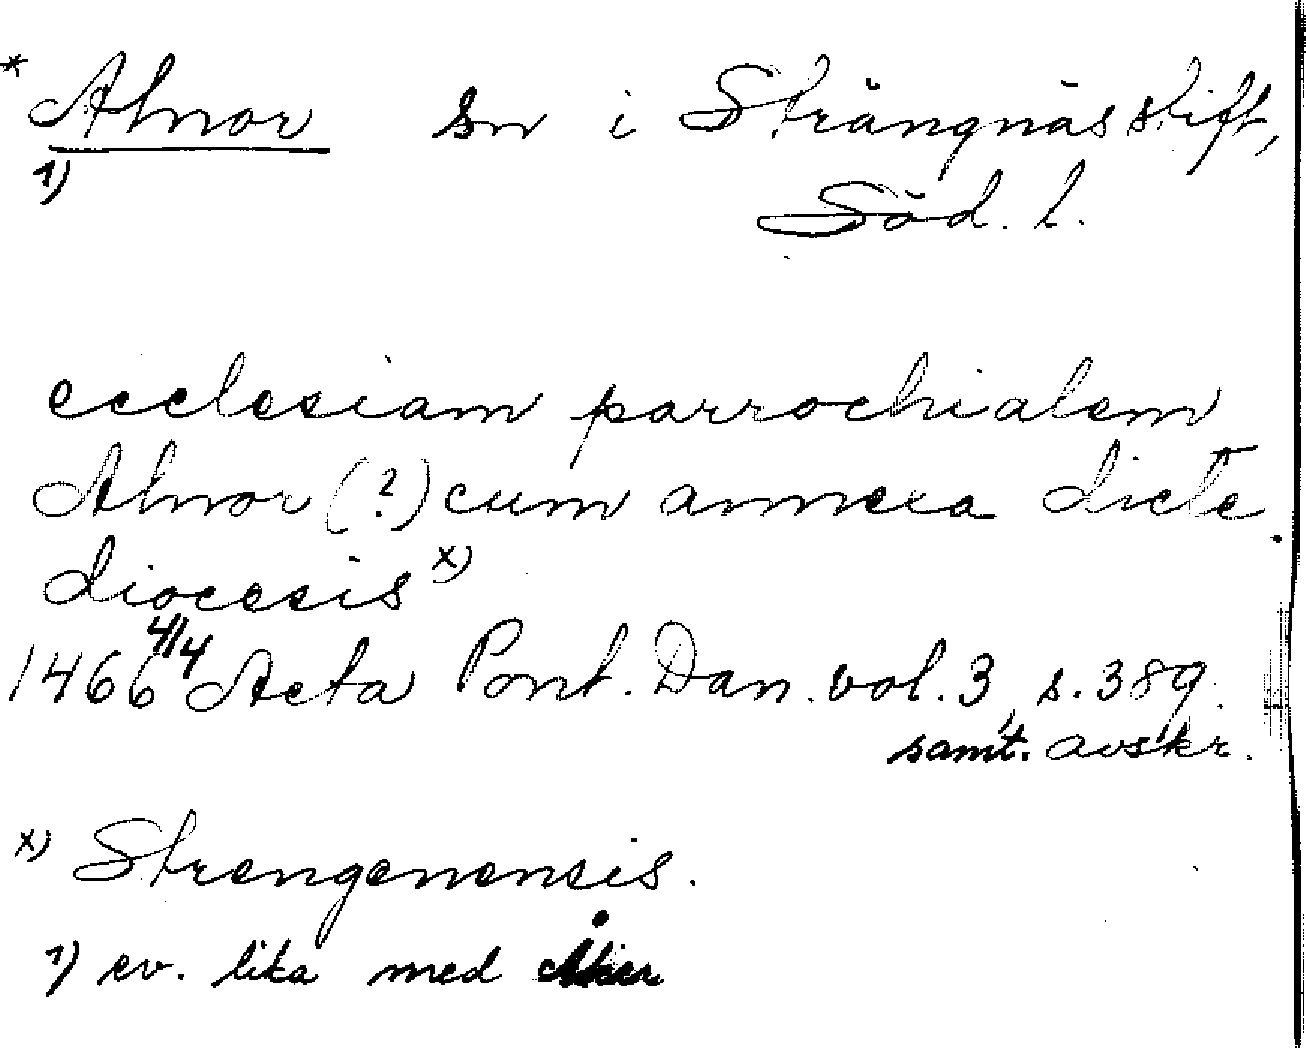 * Alnor sn i Strängnäs stift,
1) Söd. l.
ecclesiam parrochialem
Alnor (?) cum annexa dicte
diocesis x)
1466 4/4 Acta Pont. Dan. vol. 3, s. 389.
samt. avskr.
x) Strengenensis.
1) ev. lika med Åker